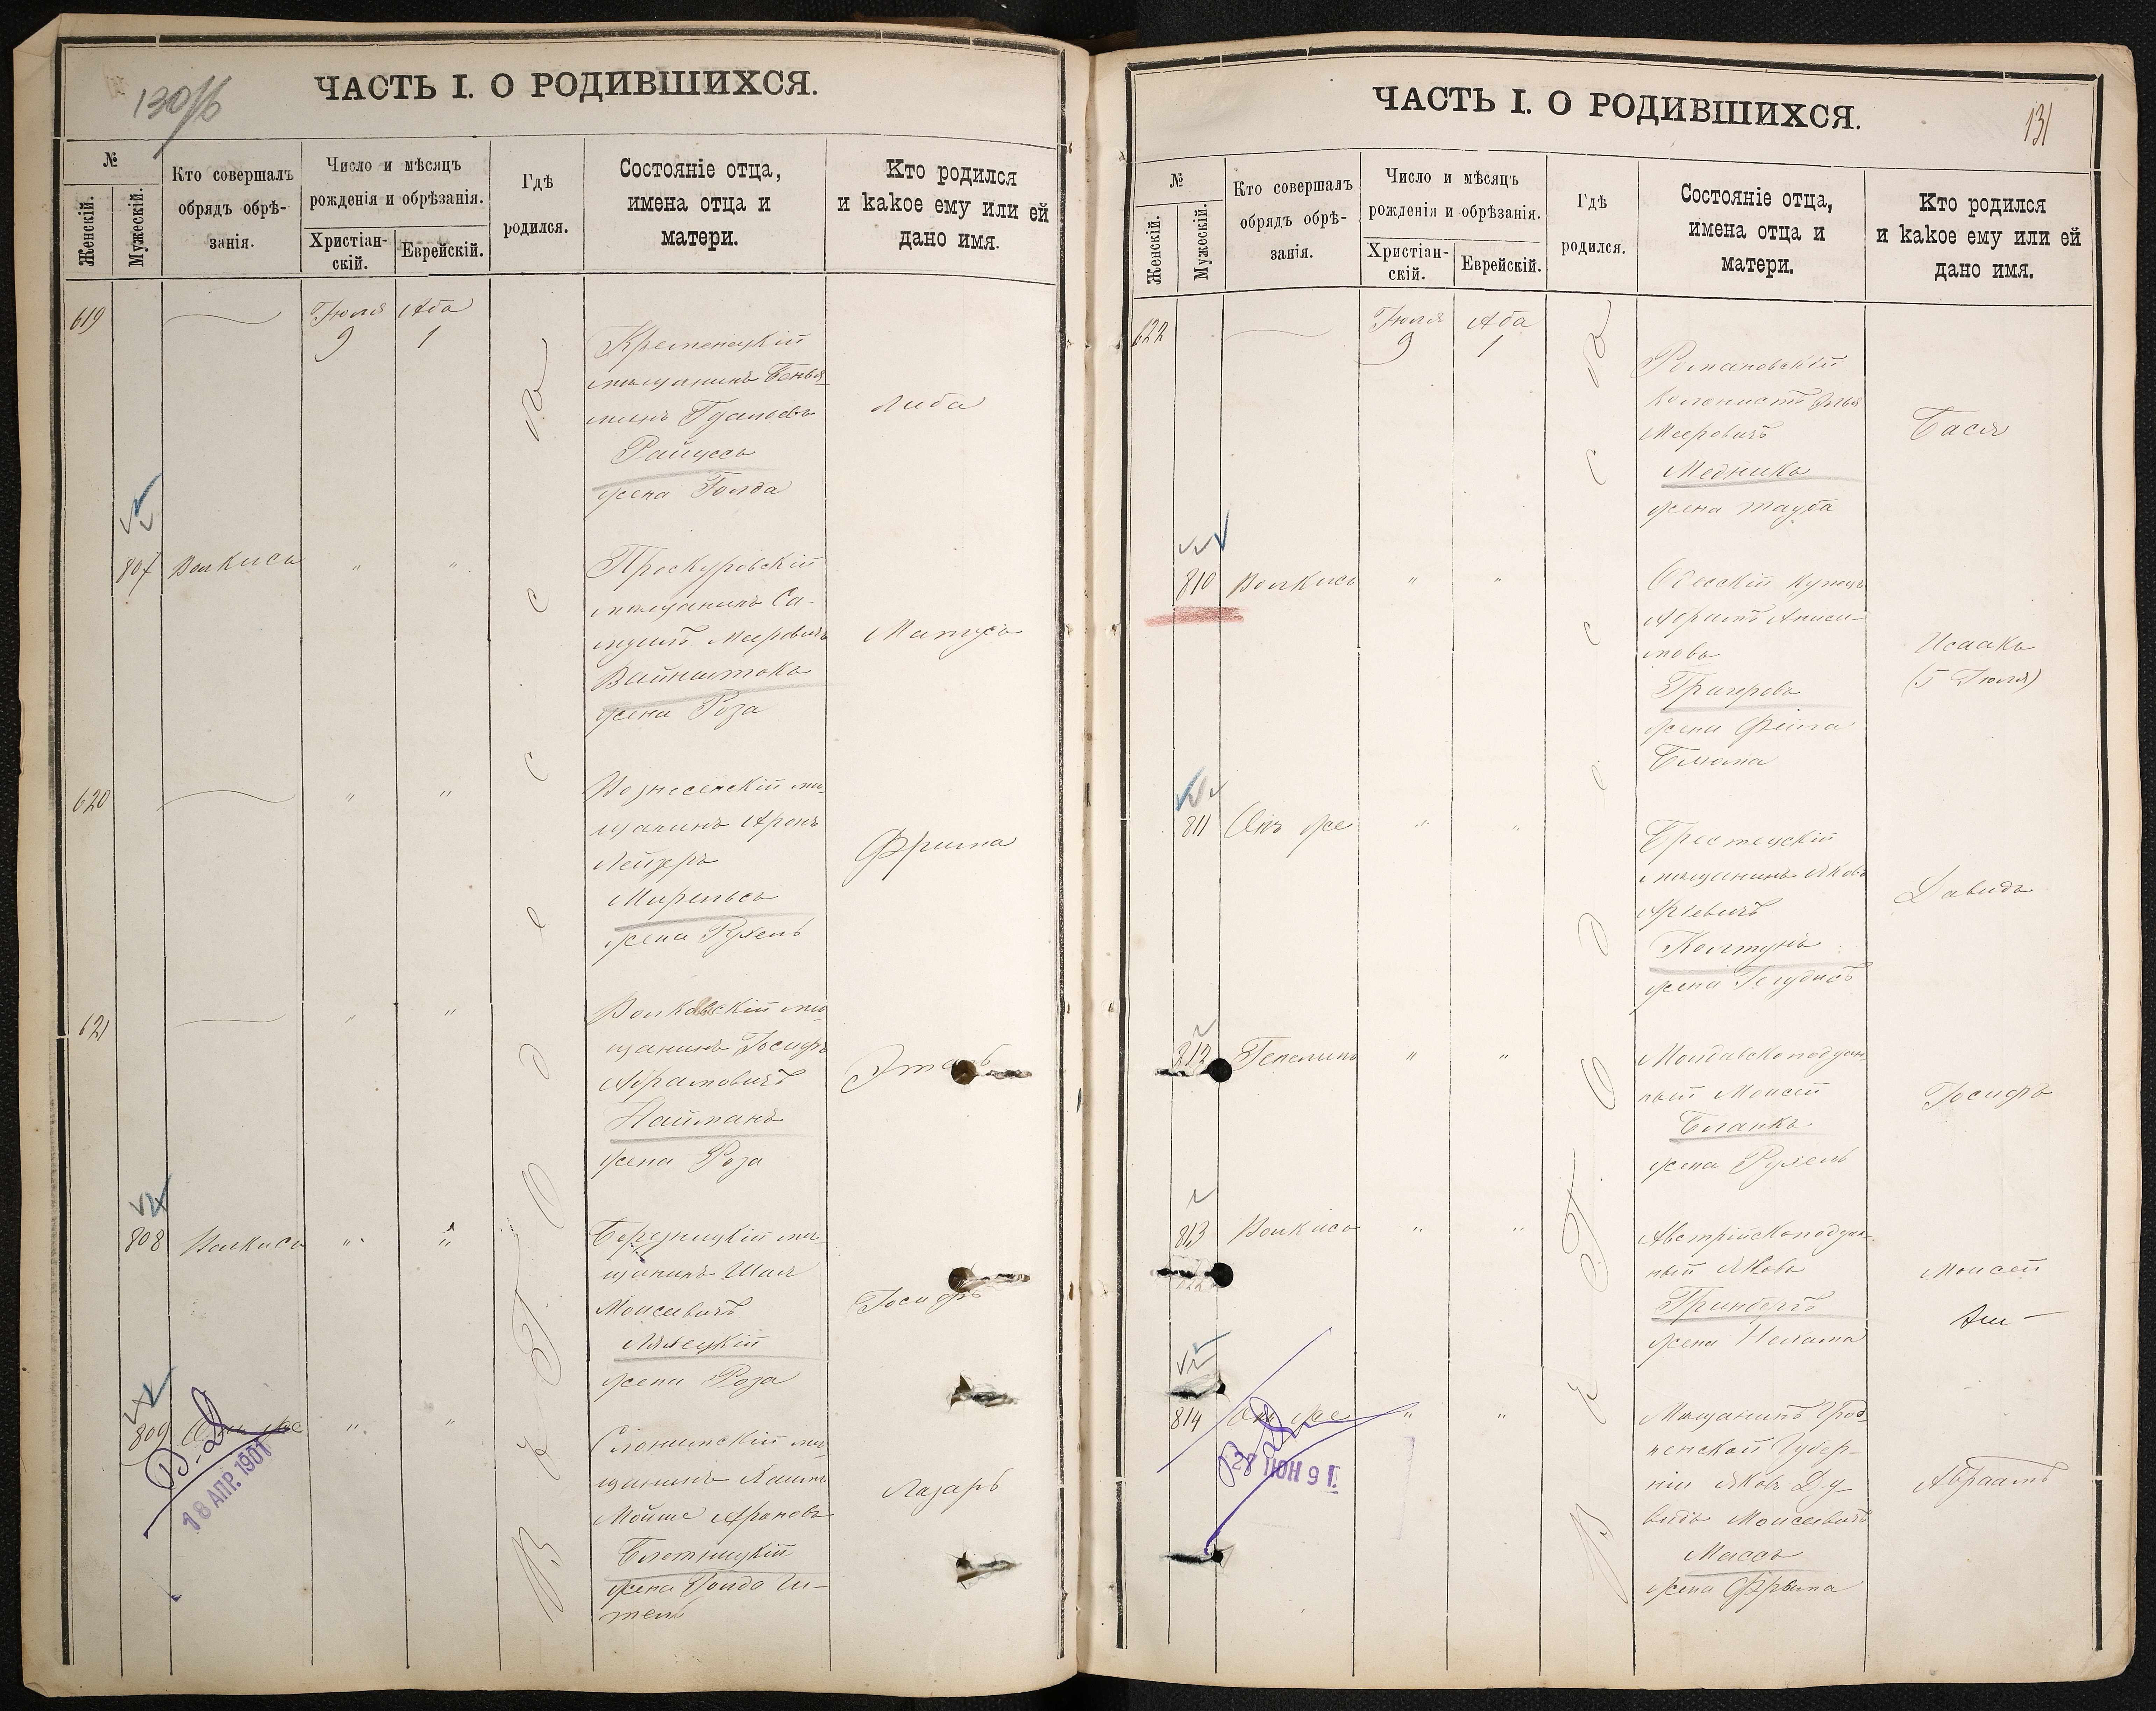 130/б
ЧАСТЬ I. О РОДИВШИХСЯ.
№
Женскій.
Мужескій.
Кто совершалъ
обрядъ обрѣ-
занія.
Число и мѣсяцъ
рожденія и обрѣзанія.
Христіан-
скій.
Еврейскій.
Гдѣ
родился.
Состояніе отца,
имена отца и
матери.
Кто родился
и какое ему или ей
дано имя.
619
Іюля Аба
9 1
Кременецкій
мѣщанинъ Бенья-
минъ
Райцесъ
жена Голда
Либа
807 Волкисъ " "
Проскуровскій
мѣщанинъ Са-
муилъ Мееровичъ
Вайнштокъ
жена Роза
Матусъ
620 " "
Вознесенскій мѣ-
щанинъ Аронъ
Лейзеръ
Мирельсъ
жена Рухель
Фрима
621 " "
мѣ-
щанинъ Іосифъ
Абрамовичъ
Найманъ
жена Роза
808 Волкисъ " "
Березницкій мѣ-
щанинъ Шая
Моисеевичъ
Ляхецкій
жена Роза
Іосифъ
809 Онъ же " "
Слонимскій мѣ-
щанинъ Хаимъ
Мойше Ароновъ
Блетницкій
жена Голда Ги-
тель
Лазарь
18 АПР. 1901
Въ Одессѣ
131
ЧАСТЬ I. О РОДИВШИХСЯ.
№
Женскій.
Мужескій.
Кто совершалъ
обрядъ обрѣ-
занія.
Число и мѣсяцъ
рожденія и обрѣзанія.
Христіан-
скій.
Еврейскій.
Гдѣ
родился.
Состояніе отца,
имена отца и
матери.
Кто родился
и какое ему или ей
дано имя.
622
Іюля Аба
9 1
Романовскій
колонистъ Илья
Мееровичъ
Медникъ
жена Тауба
Бася
810 Волкисъ " "
Одесскій купецъ
Абрамъ Аниси-
мовъ
Трагеровъ
жена Фейга
Блюма
Исаакъ
(5 Іюля)
811 Онъ же " "
мѣщанинъ Яковъ
Аріевичъ
Колтунъ
жена
Давидъ
812 " "
Молдавскоподдан-
ный Моисей
Бланкъ
жена Рухель
Іосифъ
813 Волкисъ " "
Австрійскоподдан-
ный Яковъ
Гринбергъ
жена Нехама
Моисей
814 Онъ же " "
Мѣщанинъ Грод-
ненской Губер-
ніи Яковъ Да-
видъ Моисеевичъ
Массъ
жена Фрыма
Абрамъ
28 ІЮН 9 Г.
Въ г. Одессѣ